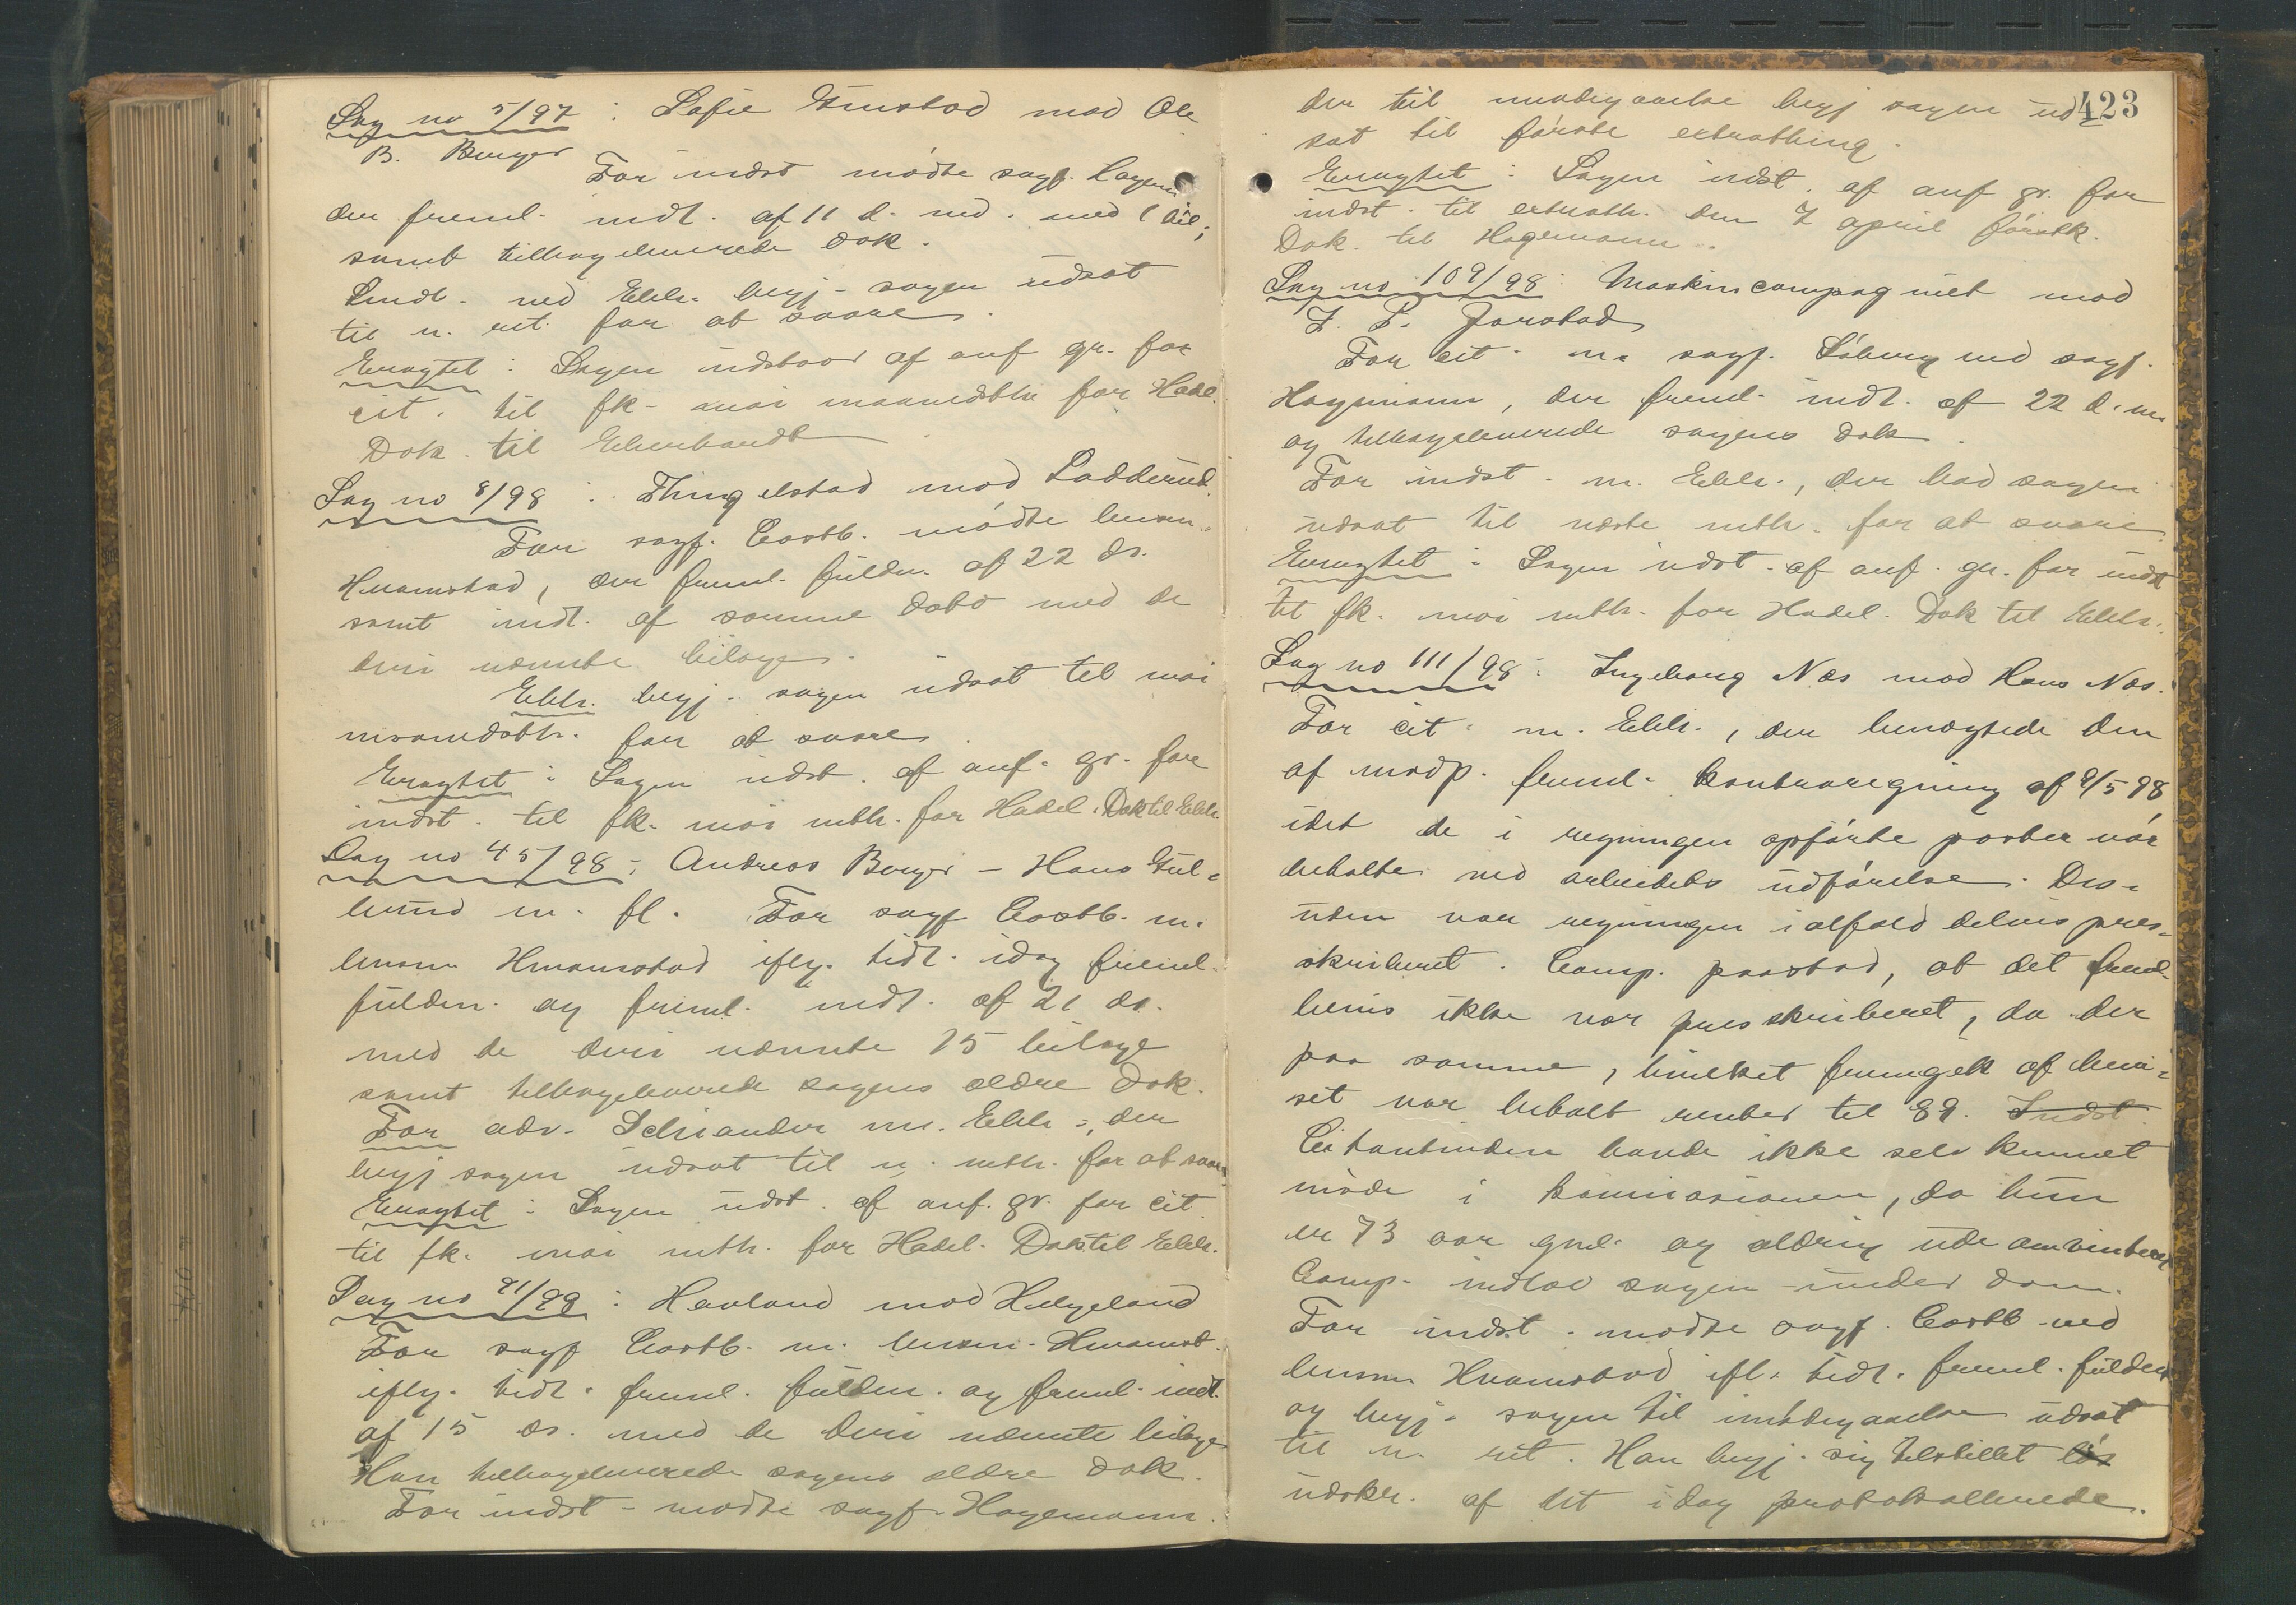 Sag no 5/97 : Sofie Gmstad mod Ole
B. Berger
For indst mødte sagf. Hagem
der freml. indl. af 11 d. md. med 1 bil;
samt tilbageleverede dok.
Smdl. ved Ebh. begj. sagen udsat
til n. ret. for at svare.
Eragtet : Sagen udstaar af anf gr. for
cit. til fk. mai maanedsth for Hadel.
Dok. til Eberhardt
Sag no 8/98 : Thingelstad mod Lodderud.
For sagf. Castb. mødte lensm.
Hvamstad, der freml. fuldm. af 22 ds.
samt indl. af samme dato med de
deri nævnte bilage.
Ebh. begj. sagen udsat til mai
maanedsth. for at svare.
Eragtet : Sagen udst. af anf. gr. for
indst. til fk. mai mth. for Hadel. Dok til Ebh.
Sag no 45/98 ; Andreas Berger – Hans Gul-
lund m. fl. For sagf Castb. m.
lensm Hvamstad iflg. tidl. idag freml.
fuldm. og freml. indl. af 21 ds.
med de deri nævnte 15 bilage
samt tilbageleverede sagens ældre dok.
For adv. Schiander m. Ebh., der
begj sagen udsat til n. mth. for at svare
Eragtet : Sagen udst. af anf. gr. for cit.
til fk. mai mth. for Hadel. Dok til Ebh.
Sag no 91/98 : Havland mod Helgeland
For sagf Castb. m. lensm. Hvamst.
iflg. tidl. freml. fuldm. og freml. indl.
af 15 ds. med de deri nævnte bilage
Han tilbageleverede sagens ældre dok.
For indst – mødte sagf. Hagemann
423
der til imødegaaelse begj sagen ud-
sat til første extrathing.
Eragtet : Sagen udst. af anf gr. for
indst. til extrath. den 7 april førstk.
Dok. til Hagemann.
Sag no 109/98 : Maskincompagniet mod
J. P. Jarstad
For cit. m. sagf. Søberg ved sagf.
Hagemann, der freml. indl. af 22 d. m.
og tilbageleverede sagens dok.
For indst. m. Ebh., der bad sagen
udsat til næste mth. for at svare
Eragtet : Sagen udst. af anf. gr. for indst
til fk. mai mth. for Hadel. Dok til Ebh.
Sag no 111/98 : Ingeborg Næs mod Hans Næs.
For cit. m. Ebh., der benægtede den
af modp. freml. kontraregning af 9/5 98
idet de i regningen opførte poster var
betalte ved arbeidets udførelse. Des-
uden var regningen ialfald delvis pres-
skriberet. Comp. paastod, at det freml.
bevis ikke var presskriberet, da der
paa samme, hvilket fremgik af bevi-
set var betalt renter til 89. Indst
Citantinden havde ikke selv kunnet
møde i kommissionen, da hun
er 73 aar gml. og aldrig ude om vinteren
Comp. indlod sagen under dom.
For indst. mødte sagf. Castb ved
lensm Hvamstad ifl. tidl. freml. fuldm
og begj. sagen til imødegaaelse udsat
til n. ret. Han begj. sig tilstillet løs
udskr. af det idag protokollerede.